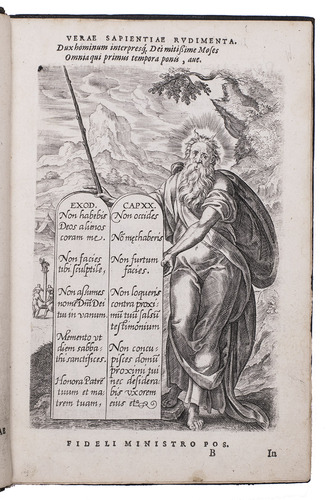 VERAE SAPIENTIAE RVDIMENTA.
Dux hominum interpresq́, Dei mitißime Moses
Omnia qui primus tempora ponis, aut.
EXOD.
Non habebis
Deos alienos
coram me.
Non facies
tibi sculptile,
Non assumes
nomē Dn̄i Dei
tui in vanum.
Memento vt
diem sabba-
thi sanctifices.
Honora Patrē
tuum et ma
trem tuam,
CAP.XX.
Non occides
Nō mechaberis
Non furtum
facies.
Non loqueris
contra proxi-
mū tuū falsū
testimonium
Non concu-
pisces domū
proximi tui
nec desidera-
bis vxorem
eius etc
FIDELI MINISTRO POS.
B
In